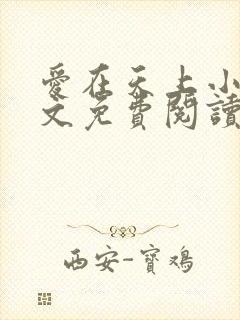 愛在天上小
文免費閱讀
西安-寶鴻